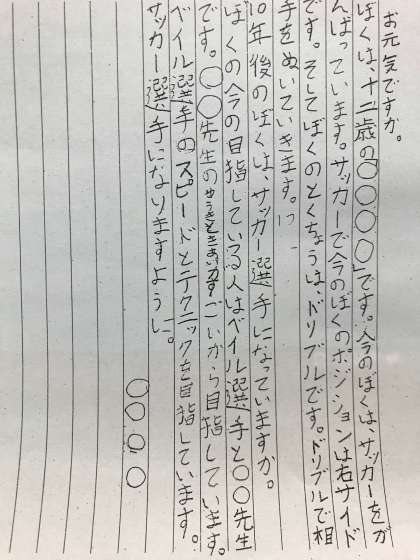 お元気ですか。
ぼくは、十二歳の「○○○○」です。今のぼくは、サッカーをが
んばっています。サッカーで今のぼくのポジションは右サイド
です。そしてぼくのとくちょうは、ドリブルです。ドリブルで相
手をぬいていきます。
10年後のぼくは、サッカー選手になっていますか。
ぼくの今の目指している人はベイル選手と○○先生
です。○○先生のゆうきときあいがすごいから目指しています。
ベイル選手のスピードとテクニックを目指しています。
サッカー選手になりますように。
○○○○